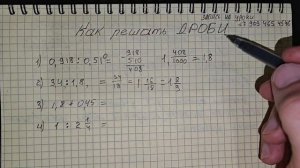 Как решать ДРОБИ
запись на уроки
+7 903 465
1) 0,918 : 0,510 = 918/510 408 1, 408/1000 = 1,8
2) 34 : 1,8 = 34/18 = 1 16/18 = 1 8/9
3) 1,8 + 0,45 =
4) 1 : 2 1/4 =